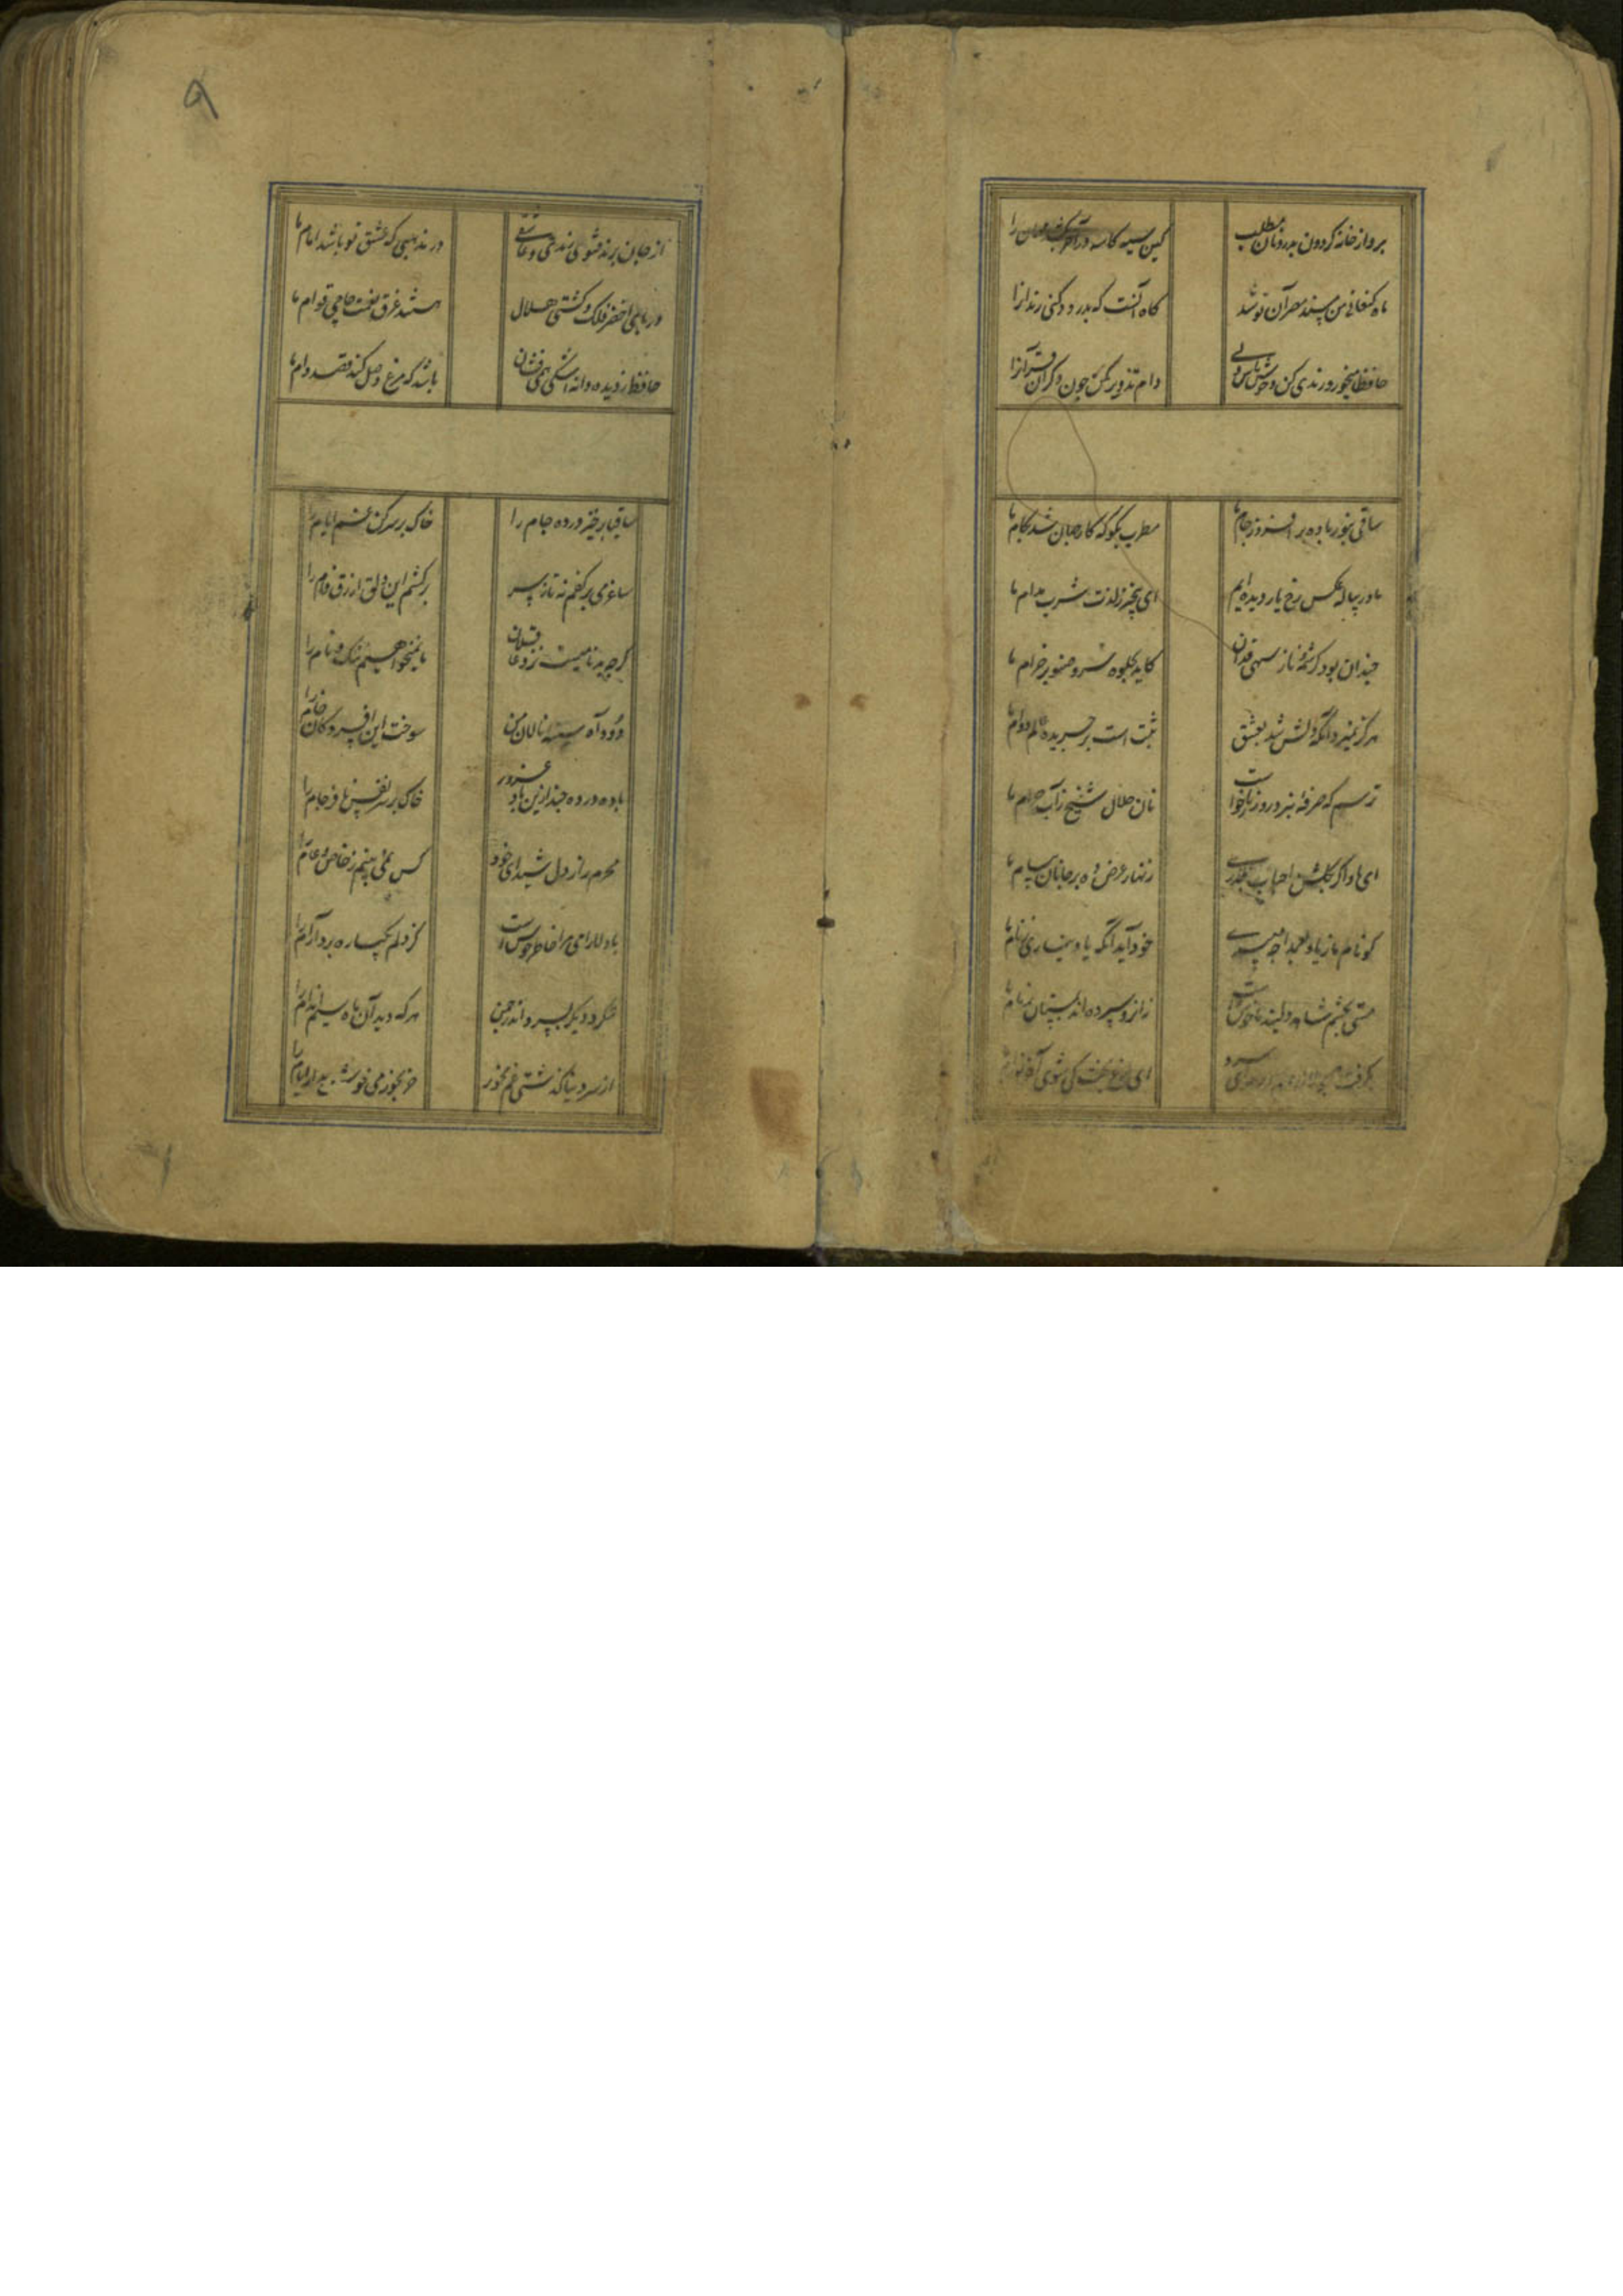 برو از خانه گردون بدر و نان مطلب کین سیه کاسه در آخر بکشد مهمان را
ماه کنعانی من مسند مصر آن تو شد گاه آنست که بدرود کنی زندان را
حافظا میخور و رندی کن و خوش باش ولی دام تزویر مکن چون دگران قرآن را
ساقی بنور باده بر افروز جام ما مطرب بگو که کار جهان شد بکام ما
ما در پیاله عکس رخ یار دیده ایم ای بیخبر ز لذت شرب مدام ما
چندان بود کرشمه و ناز سهی قدان کاید بجلوه سرو صنوبر خرام ما
هرگز نمیرد آنکه دلش شد بعشق ثبت است بر جریده عالم دوام ما
ترسم که صرفه نبرد روز بازخواست نان حلال شیخ ز آب حرام ما
ای باد اگر بگلشن احباب بگذری زنهار عرض ده بر جانان پیام ما
گو نام ما ز یاد بعمدا چه میبری خود آید آنکه یاد نیاری ز نام ما
مستی بچشم شاهد دلبند ما خوش است زانرو سپرده اند بمستان زمام ما
بگرفت ای
از در مذهبی که عشق تو باشد امام ما
دریای اخضر فلک و کشتی هلال هستند غرق نعمت حاجی قوام ما
حافظ ز دیده دانه اشکی همی فشان باشد که مرغ وصل کند قصد دام ما
ساقیا برخیز و در ده جام را خاک بر سر کن غم ایام را
ساغر می بر کفم نه تا ز بر برکشم این دلق ازرق فام را
گرچه بدنامیست نزد عاقلان ما نمیخواهیم ننگ و نام را
دود آه سینه نالان من سوخت این افسردگان خام را
باده در ده چند ازین باد غرور خاک بر سر نفس نافرجام را
محرم راز دل شیدای خود کس نمی بینم ز خاص و عام را
با دلارامی مرا خاطر خوش است کز دلم یکباره برد آرام را
ننگرد دیگر بسرو اندر چمن هر که دید آن ماه سیم اندام را
از سر دنیا گذشتی غم مخور
۹